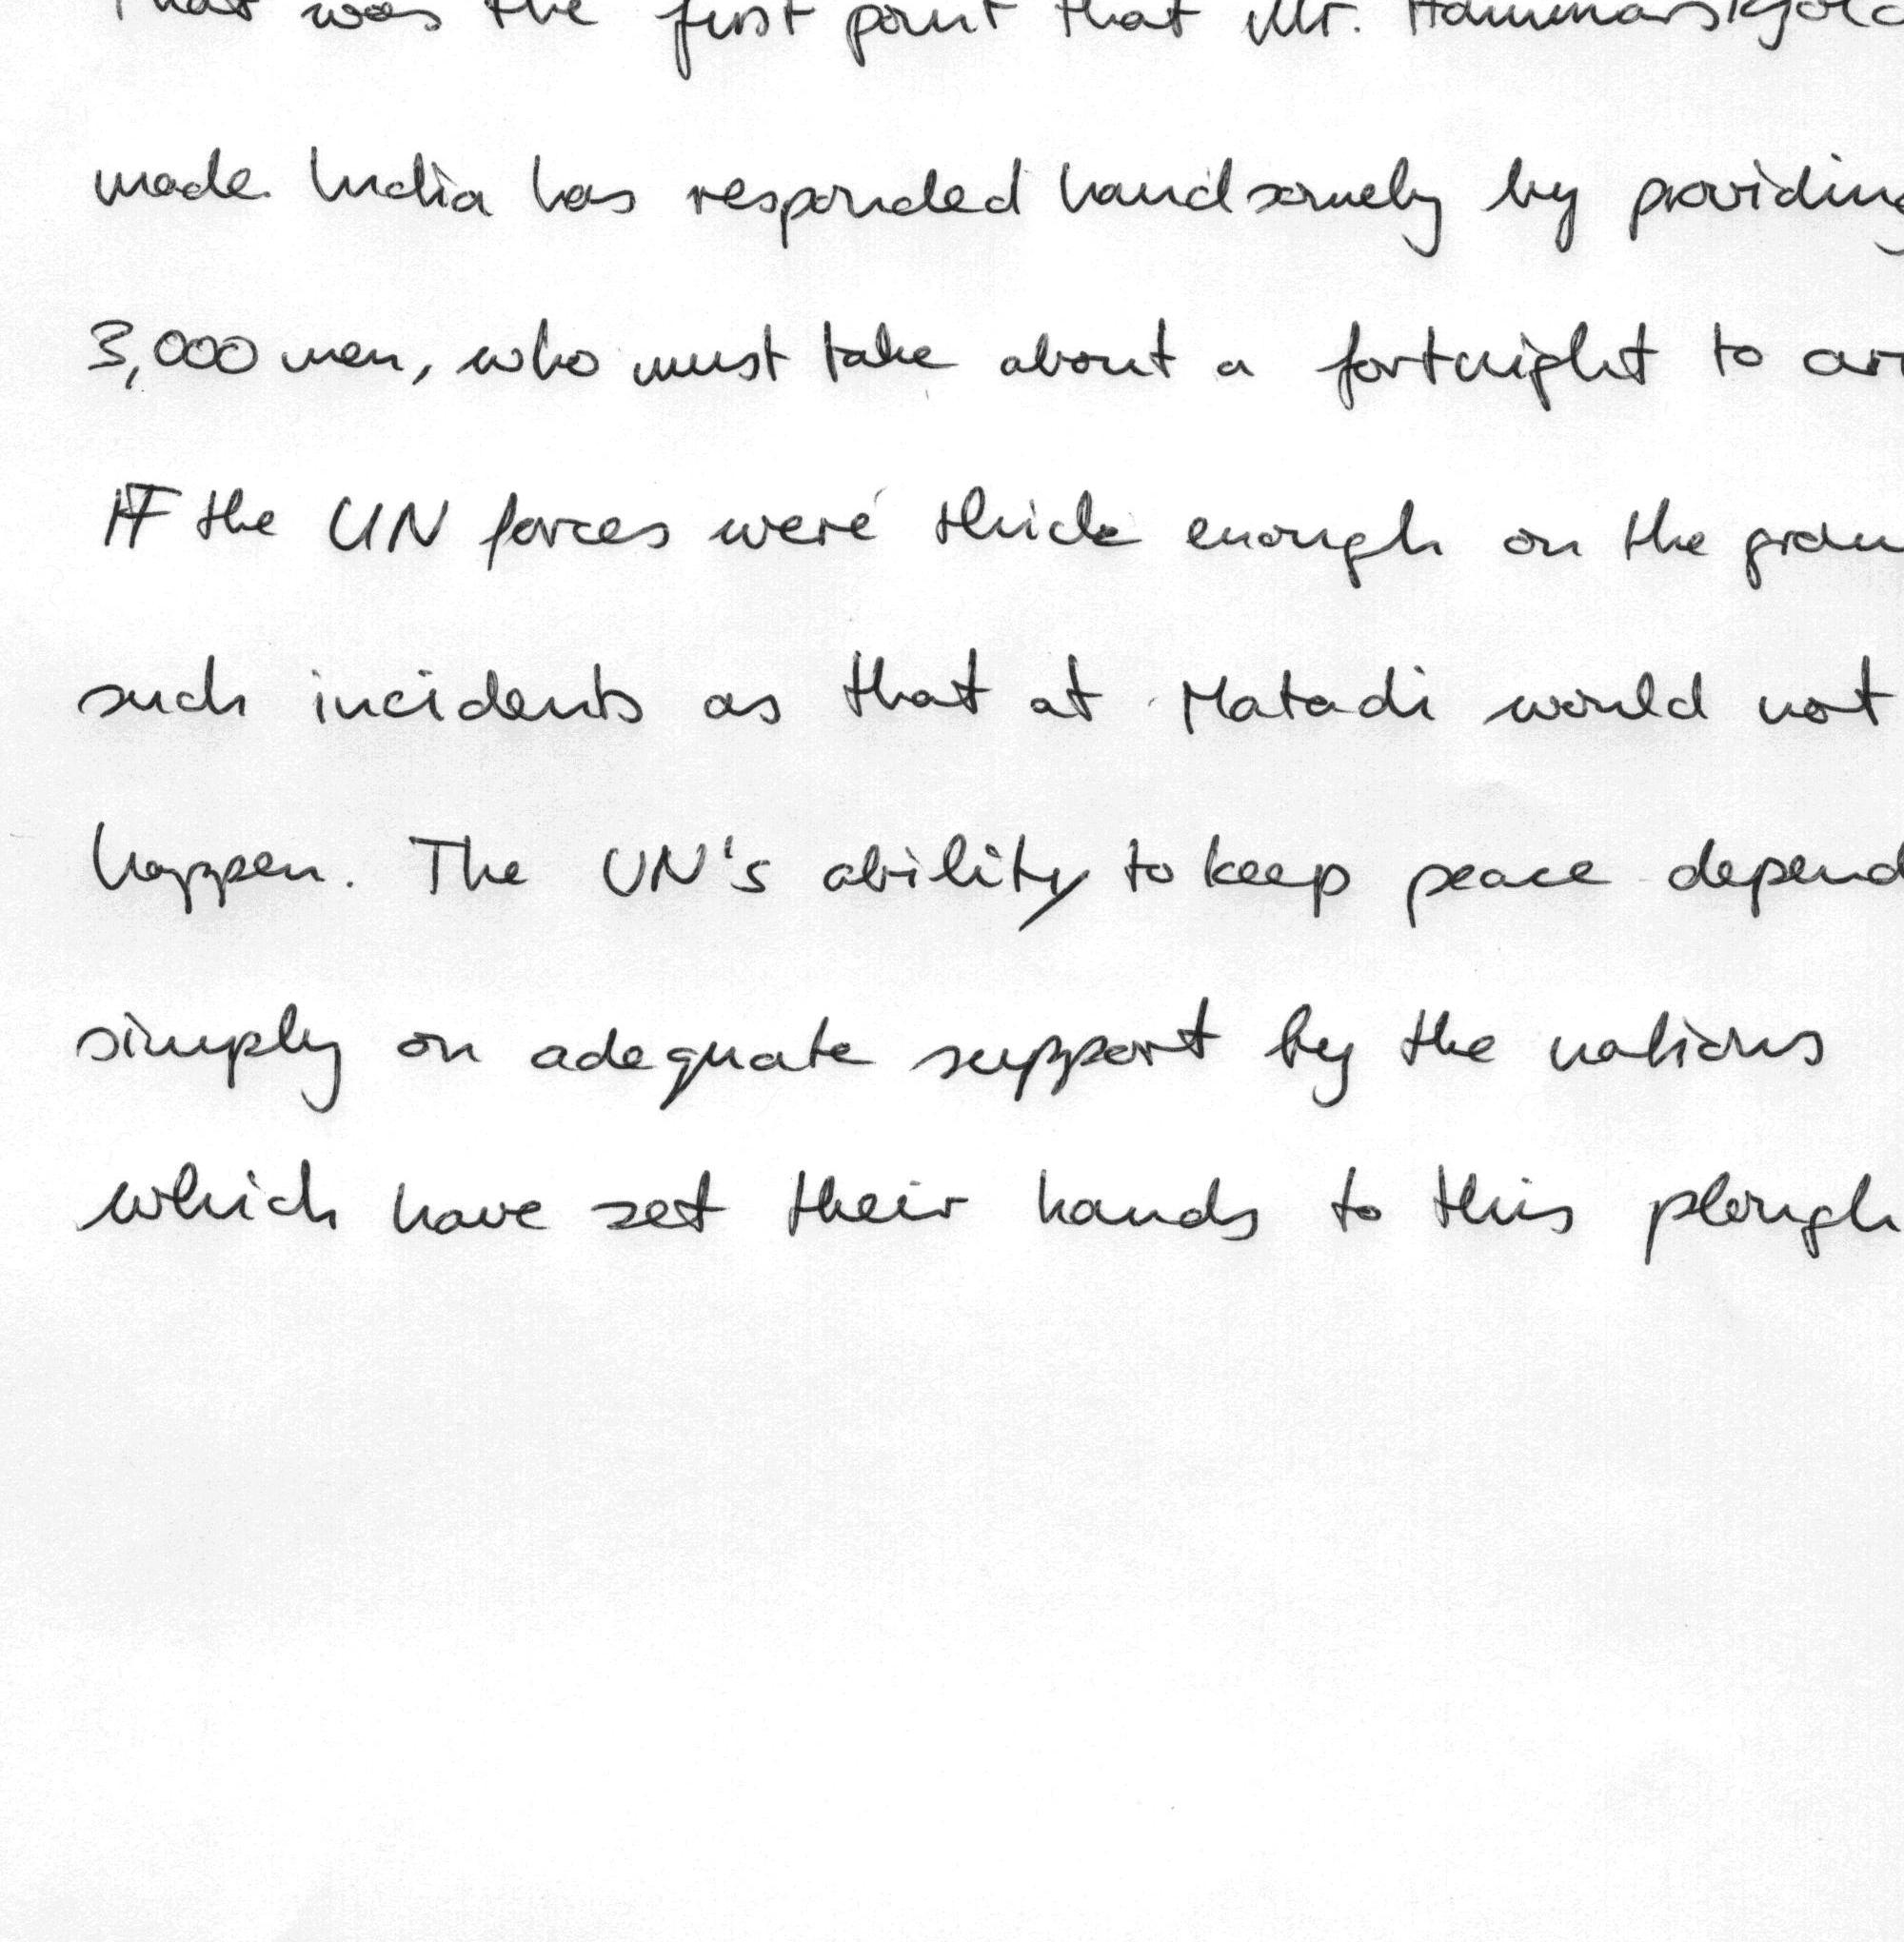 That was the first point that Mr. Hammarskjold
made. India has responded handsomely by providing
3,000 men, who must take about a fortnight to
IF the UN forces were thick enough on the
such incidents as that at Matadi would not
happen. The UN's ability to keep peace depend
simply on adequate support by the nations
which have set their hands to this plough